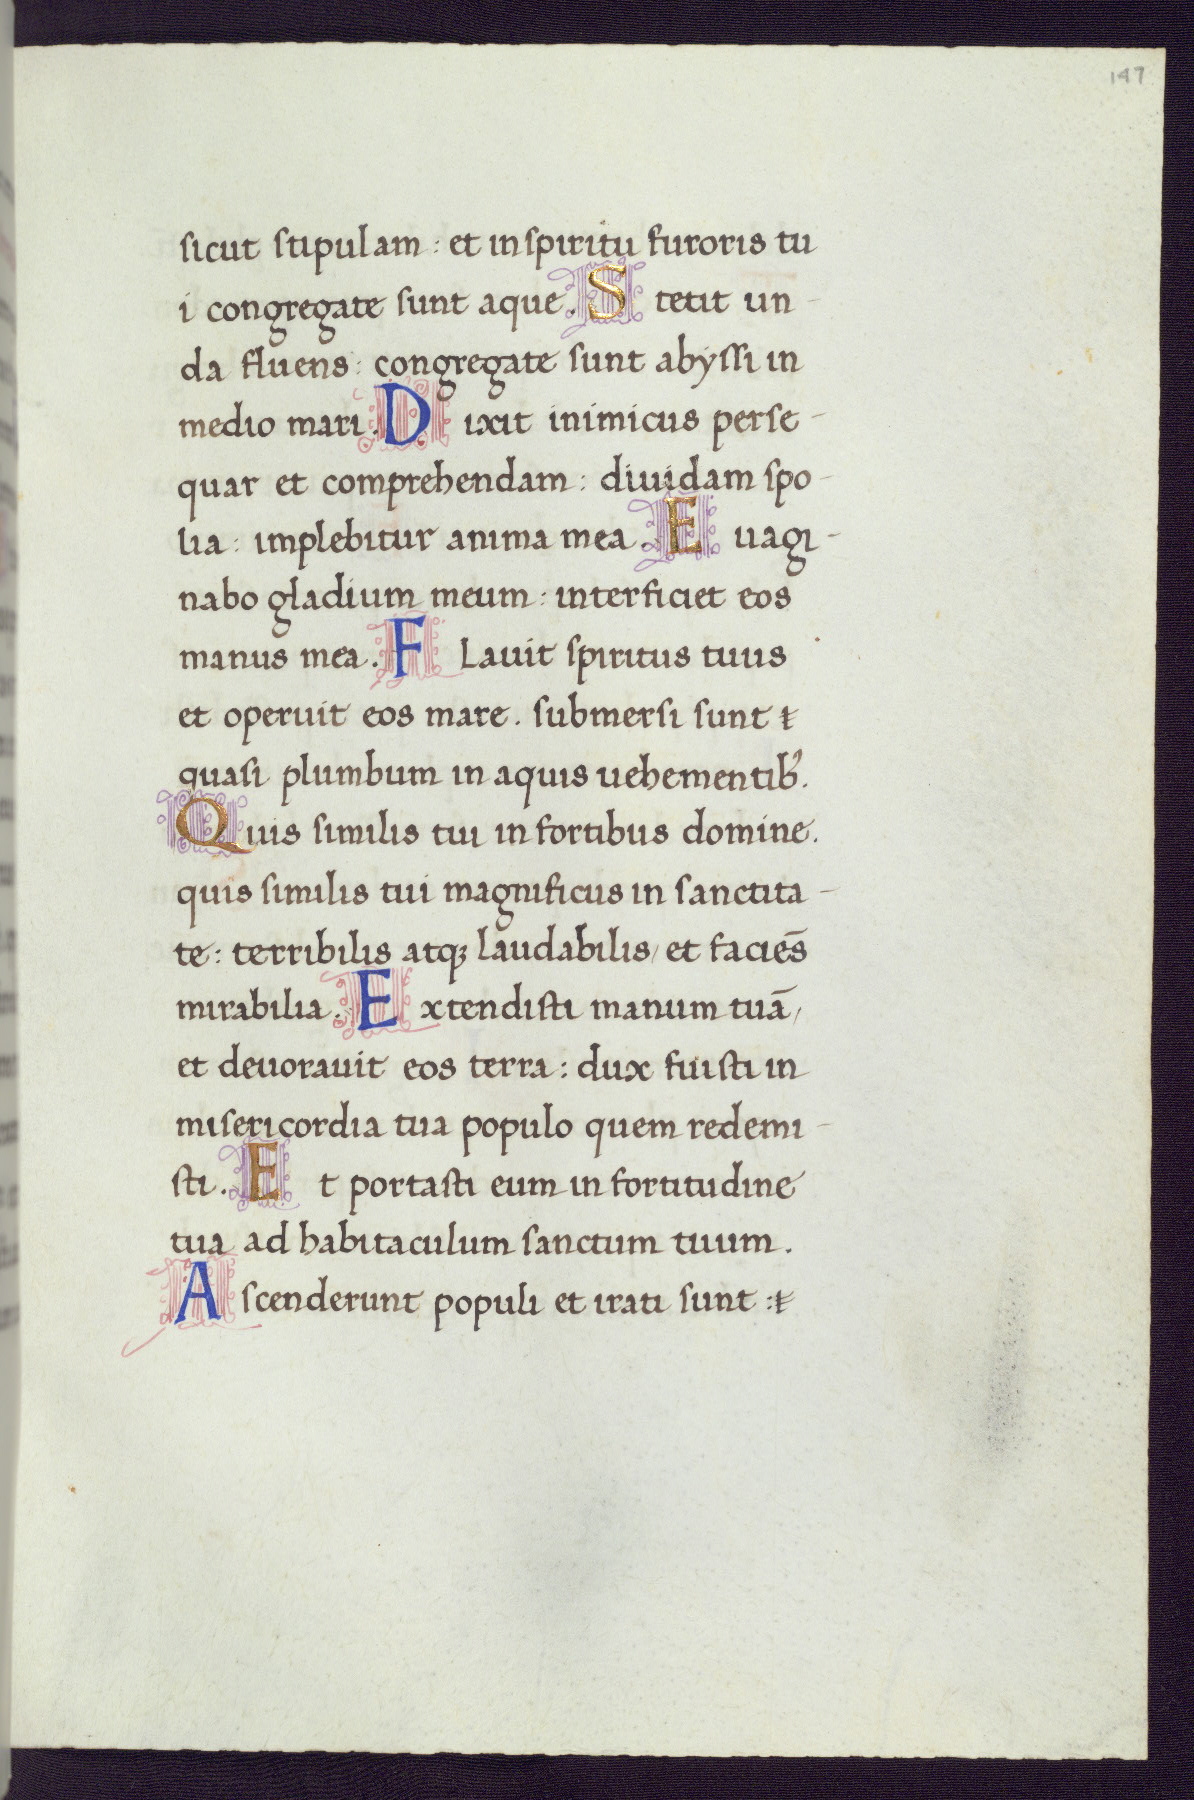 147
sicut stipulam : et in spiritu furoris tu
i congregate sunt aque. Stetit un-
da fluens : congregate sunt abyssi in
medio mari. Dixit inimicus perse-
quar et comprehendam : diuidam spo-
lia : implebitur anima mea. Euagi-
nabo gladium meum : interficiet eos
manus mea. Flauit spiritus tuus
et operuit eos mare. submersi sunt
quasi plumbum in aquis uehementib9.
Quis similis tui in fortibus domine.
quis similis tui magnificus in sanctita-
te : terribilis atq; laudabilis / et facies̄
mirabilia. Extendisti manum tuā /
et deuorauit eos terra : dux fuisti in
misericordia tua populo quem redemi-
sti. Et portasti eum in fortitudine
tua ad habitaculum sanctum tuum.
Ascenderunt populi et irati sunt :